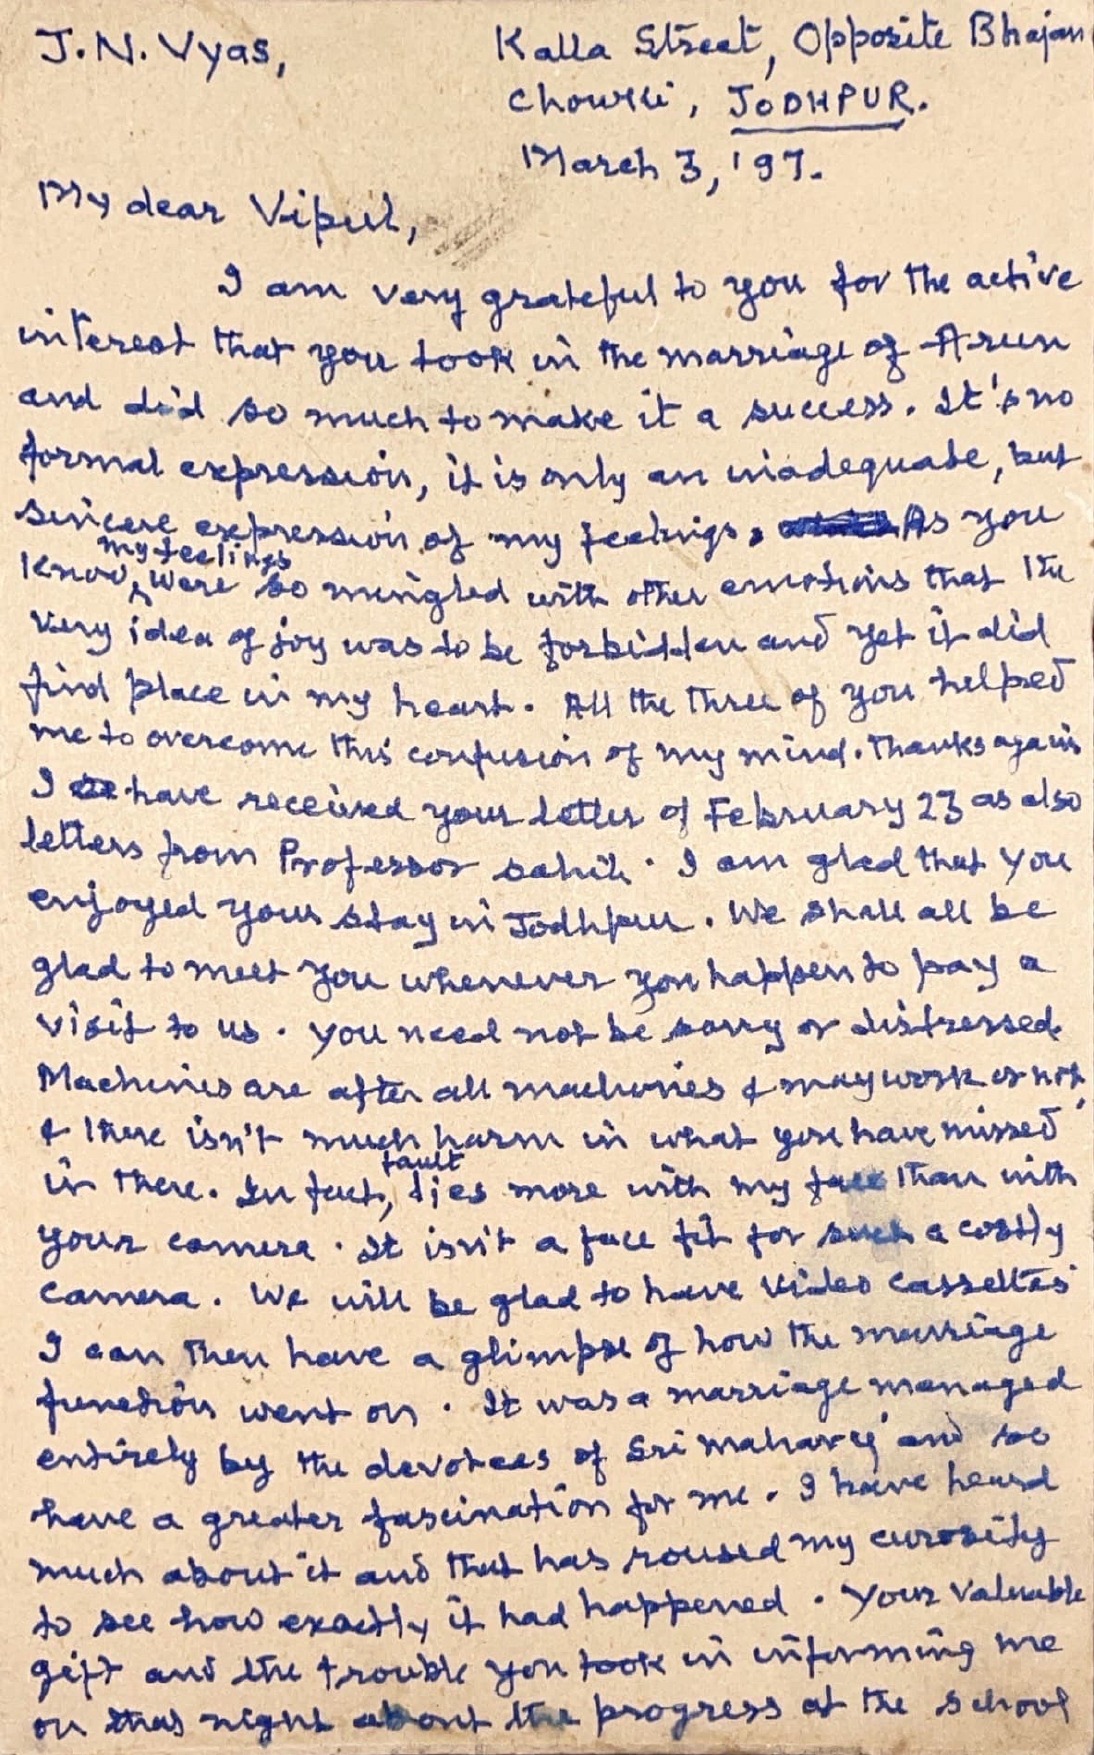 J.N. Vyas,
Kalla Street, Opposite Bhajan
Chowki, JODHPUR.
March 3, '97.
My dear Vipul,
I am very grateful to you for the active
interest that you took in the marriage of Arun
and did so much to make it a success. It's no
formal expression, it is only an inadequate, but
sincere expression of my feelings. As you
know, my feelings were so mingled with other emotions that the
very idea of joy was to be forbidden and yet it did
find place in my heart. All the three of you helped
me to overcome this confusion of my mind. Thanks again
I have received your letter of February 23 as also
letters from Professor sahib. I am glad that you
enjoyed your stay in Jodhpur. We shall all be
glad to meet you whenever you happen to pay a
visit to us. You need not be sorry or distressed.
Machines are after all machines & may work or not,
& there isn't much harm in what you have missed
in there. In fact, fault lies more with my face than with
your camera. It isn't a face fit for such a costly
camera. We will be glad to have video cassettes
I can then have a glimpse of how the marriage
function went on. It was a marriage managed
entirely by the devotees of Sri Maharaj and so
have a greater fascination for me. I have heard
much about it and that has roused my curosity
to see how exactly it had happened. Your valuable
gift and the trouble you took in informing me
on that night about the progress at the school